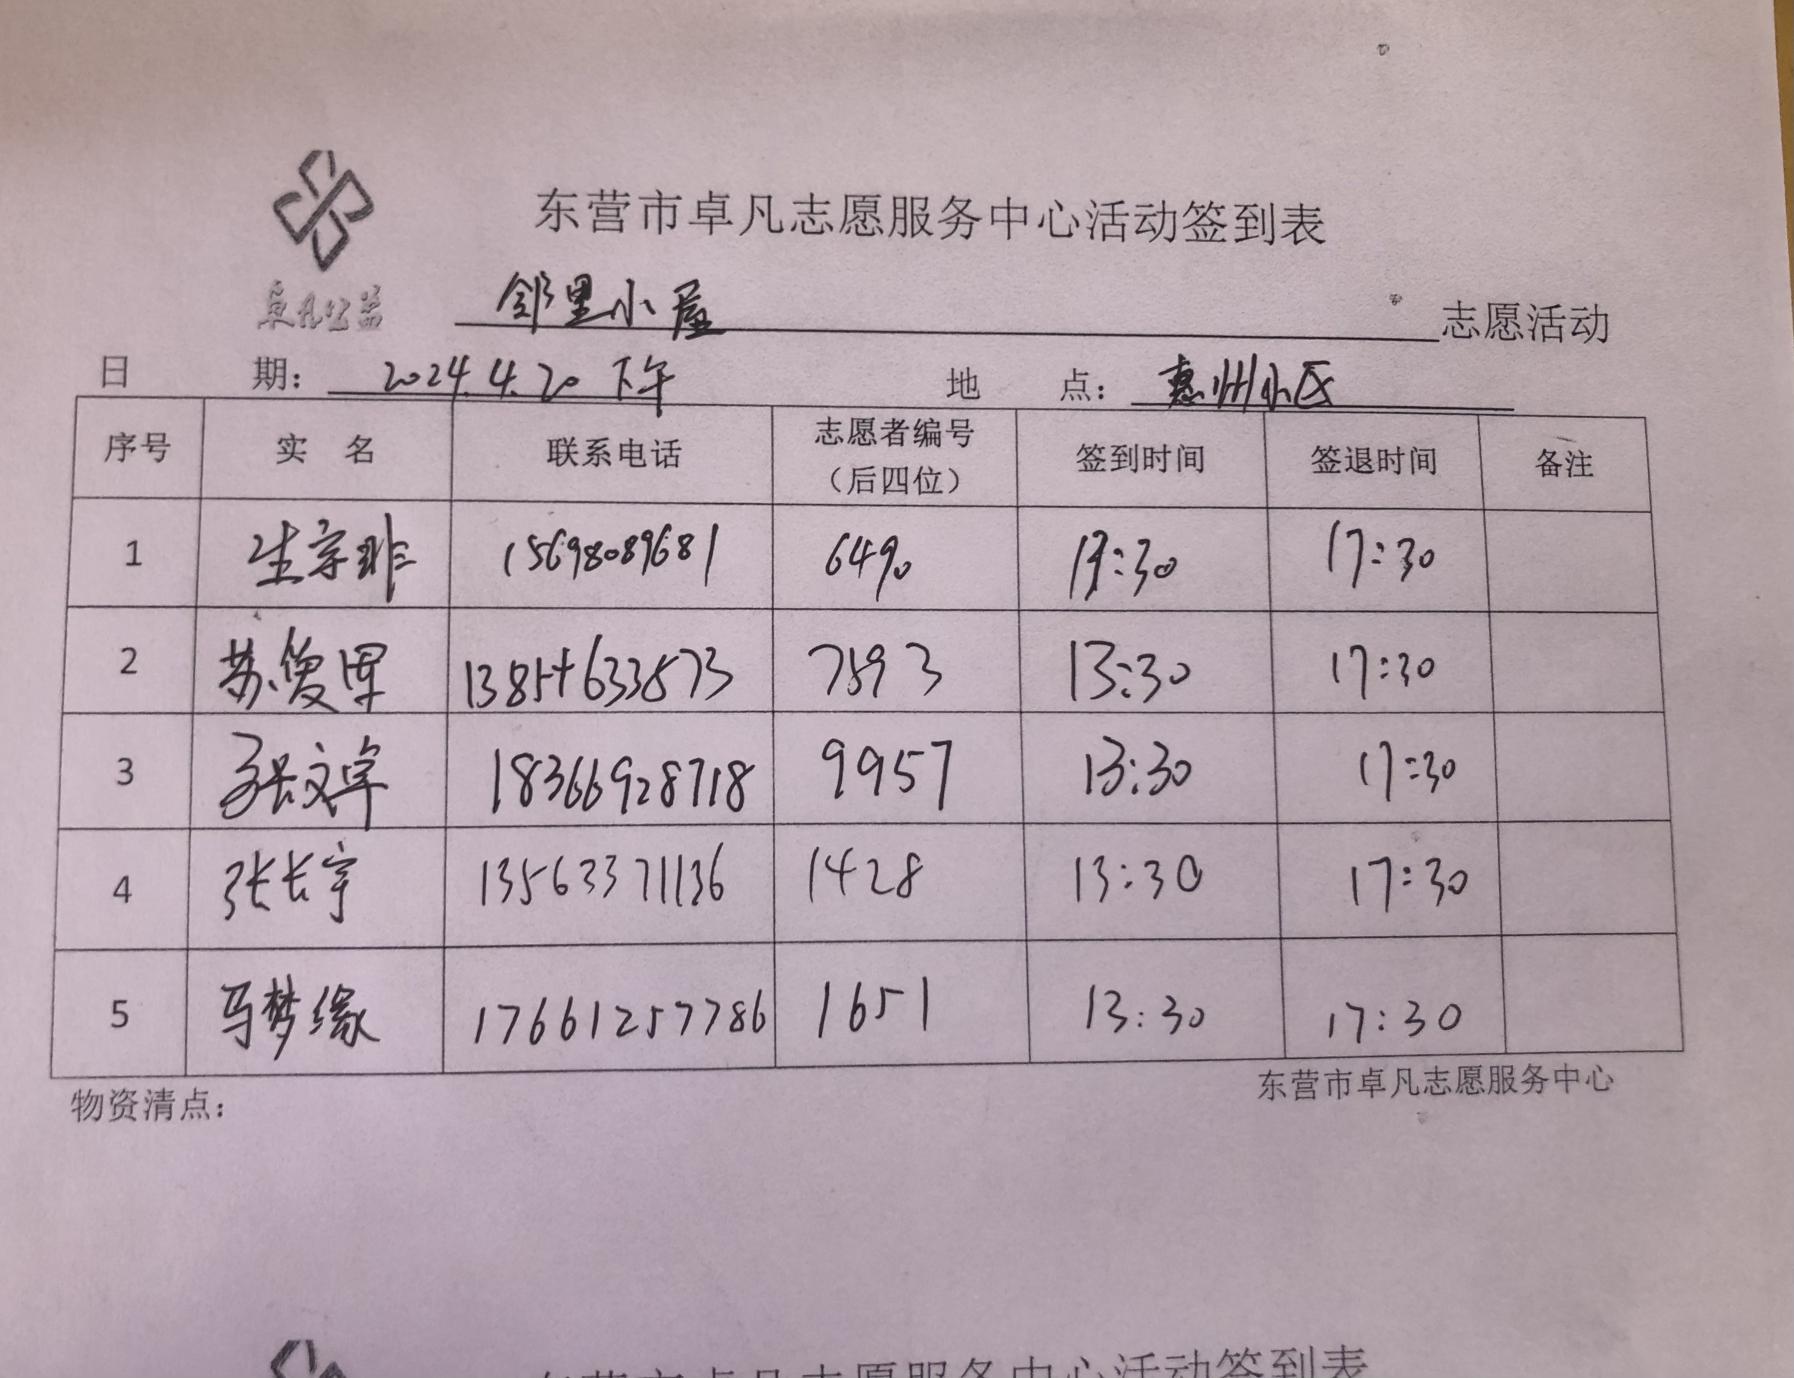 东营市卓凡志愿服务中心活动签到表
卓凡公益
邻里小屋 志愿活动
日 期: 2024.4.20 下午 地 点: 惠州小区
序号 实 名 联系电话 志愿者编号（后四位） 签到时间 签退时间 备注
1 生宇非 15698089681 6490 13:30 17:30
2 苏俊 13854633573 7593 13:30 17:30
3 张文卓 18366928718 9957 13:30 17:30
4 张长宇 13563371136 1428 13:30 17:30
5 马梦缘 17661257786 1651 13:30 17:30
物资清点: 东营市卓凡志愿服务中心
东营市卓凡志愿服务中心活动签到表